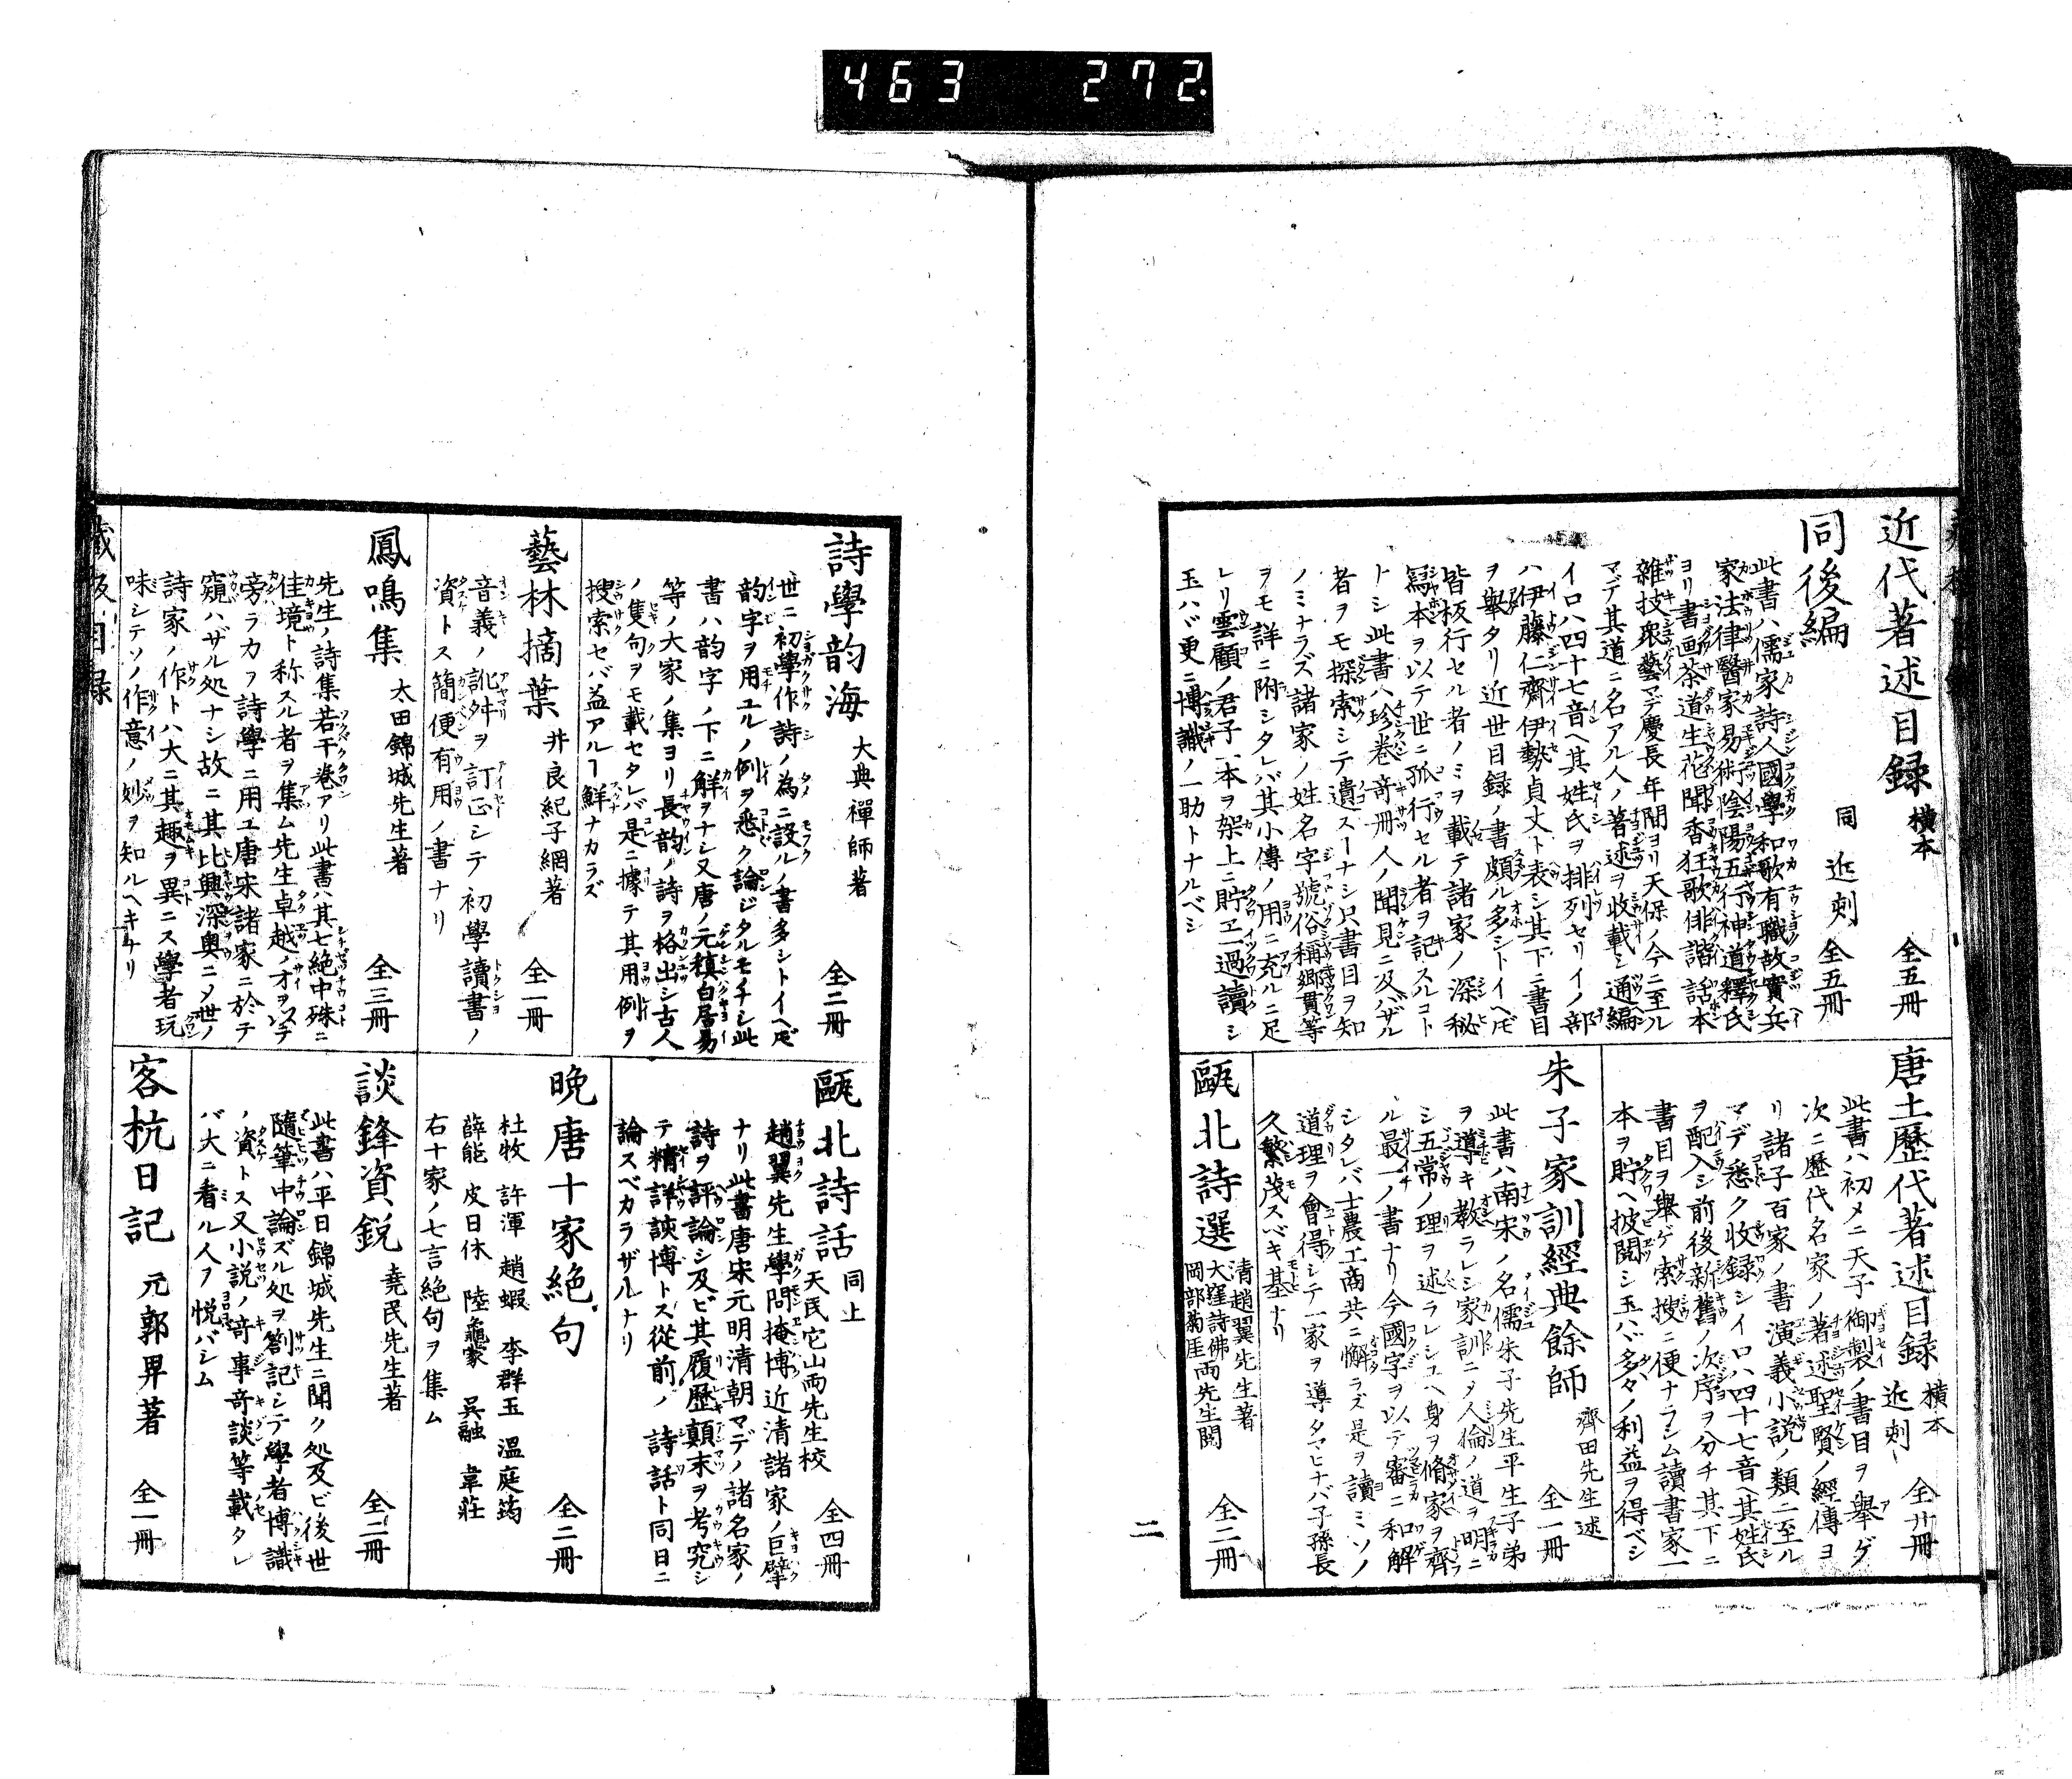 463 272
近代著述目録 横本 全五冊
同後編 同 近刻 全五冊
此書ハ儒家詩人國學和歌有職故實兵
家法律醫家易術陰陽五行神道釋氏
ヨリ書画茶道生花聞香狂歌俳諧話本
雜技衆藝マデ慶長年間ヨリ天保ノ今ニ至ル
マデ其道ニ名アル人ノ著述ヲ收載シ通編
イロハ四十七音ヘ其姓氏ヲ排列セリイノ部
ハ伊藤仁齋伊勢貞丈ト表シ其下ニ書目
ヲ舉タリ近世目録ノ書頗ル多シトイヘドモ
皆板行セル者ノミヲ載テ諸家ノ深秘
寫本ヲ以テ世ニ孤行セル者ヲ記スルコト
トシ此書ハ珍卷奇冊人ノ聞見ニ及バザル
者ヲモ探索シテ遺スーナシ只書目ヲ知
ノミナラズ諸家ノ姓名字號俗稱郷貫等
ヲモ詳ニ附シタレバ其小傳ノ用ニ充ルニ足
レリ雲顧ノ君子一本ヲ架上ニ貯ヱ一過讀シ
玉ハバ更ニ博識ノ一助トナルベシ
唐土歷代著述目録 横本 近刻 全廿冊
此書ハ初メニ天子御製ノ書目ヲ舉ゲ
次ニ歷代名家ノ著述聖賢ノ經傳ヨ
リ諸子百家ノ書演義小説ノ類ニ至ル
マデ悉ク收録シイロハ四十七音ヘ其姓氏
ヲ配入シ前後新舊ノ次序ヲ分チ其下ニ
書目ヲ舉ゲ索搜ニ便ナラシム讀書家一
本ヲ貯ヘ披閲シ玉ハバ多々ノ利益ヲ得ベシ
朱子家訓經典餘師 齊田先生述 全一冊
此書ハ南宋ノ名儒朱子先生平生子弟
ヲ導キ教ラレシ家訓ニシテ人倫ノ道ヲ明ニ
シ五常ノ理ヲ述ラレシユヘ身ヲ脩家ヲ齊
ル最一ノ書ナリ今國字ヲ以テ審ニ和解
シタレバ士農工商共ニ懈ラズ是ヲ讀ミソノ
道理ヲ會得シテ一家ヲ導タマヒナバ子孫長
久繁茂スベキ基ナリ
甌北詩選 清趙翼先生著 大窪詩佛 岡部菊厓 両先生閲 全二冊
二
詩學韵海 大典禪師著 全二冊
世ニ初學作詩ノ為ニ設ルノ書多シトイヘドモ
韵字ヲ用ユルノ例ヲ悉ク論ジタルモナシ此
書ハ韵字ノ下ニ解ヲナシ又唐ノ元稹白居易
等ノ大家ノ集ヨリ長韵ノ詩ヲ格出シ古人
ノ隻句ヲモ載セタレバ是ニ據テ其用例ヲ
搜索セバ益アルー鮮ナカラズ
藝林摘葉 井良紀子網著 全一冊
音義ノ訛舛ヲ訂正シテ初學讀書ノ
資トス簡便有用ノ書ナリ
鳳鳴集 太田錦城先生著 全三冊
先生ノ詩集若干卷アリ此書ハ其七絶中殊ニ
佳境ト称スル者ヲ集ム先生卓越ノオヲ以テ
旁ラカフ詩學ニ用ユ唐宋諸家ニ於テ
窺ハザル処ナシ故ニ其比興深奥ニシテ世ノ
詩家ノ作トハ大ニ其趣ヲ異ニス學者玩
味シテソノ作意ノ妙ヲ知ルヘキナリ
甌北詩話 同上 天民它山両先生校 全四冊
趙翼先生學問掩博近清諸家ノ巨擘
ナリ此書唐宋元明清朝マデノ諸名家ノ
詩ヲ評論シ及ビ其履歷顛末ヲ考究シ
テ精詳該博トス従前ノ詩話ト同日ニ
論スベカラザルナリ
晩唐十家絶句 全二冊
杜牧 許渾 趙嘏 李群玉 溫庭筠
薛能 皮日休 陸龜蒙 呉融 韋莊
右十家ノ七言絶句ヲ集ム
談鋒資鋭 堯民先生著 全二冊
此書ハ平日錦城先生ニ聞ク処及ビ後世
隨筆中論ズル処ヲ劄記シテ學者博識
ノ資トス又小説ノ奇事奇談等載タレ
バ大ニ看ル人ヲ悦バシム
客杭日記 元郭畀著 全一冊
藏板目録